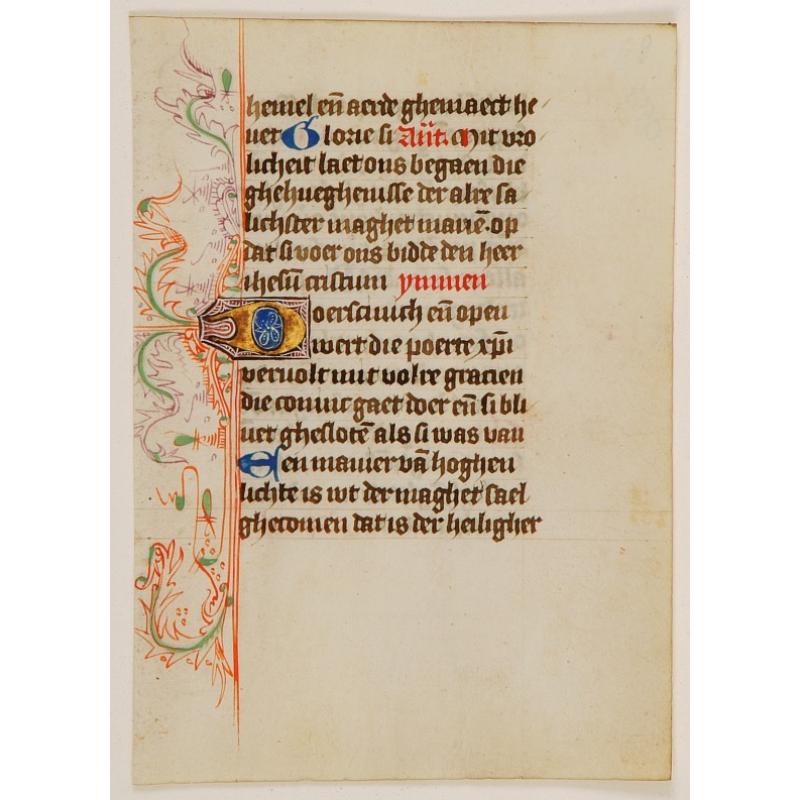 hemel en̄ aerde ghemaect he
uet Glorie si Ant. Mit vro
licheit laet ons begaen die
ghehueghenisse der alre sa
lichster maghet mariē. op
dat si voer ons bidde den heer
ihesū cristum ymmen
Doerscinich en̄ open
wert die poerte xp̄i
veruolt mit volre gracien
die conīnc gaet doer en̄ si bli
uet ghesloten̄ als si was van
Een manier vā hoghen
lichte is wt der maghet sael
ghecomen dat is der heiligher